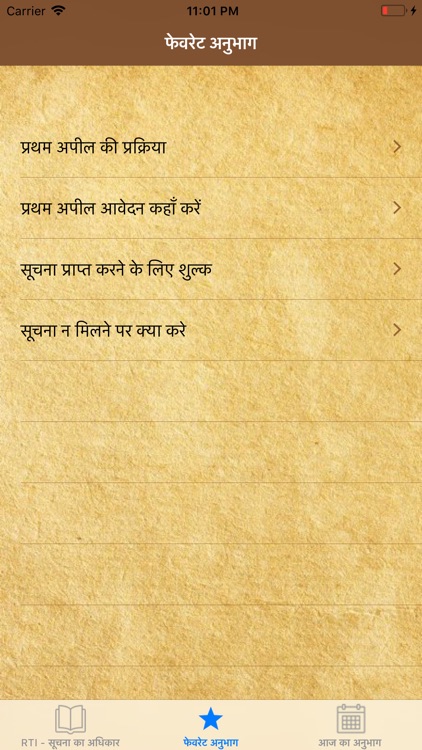 Carrier 11:01 PM
फेवरेट अनुभाग
प्रथम अपील की प्रक्रिया
प्रथम अपील आवेदन कहाँ करें
सूचना प्राप्त करने के लिए शुल्क
सूचना न मिलने पर क्या करे
RTI - सूचना का अधिकार फेवरेट अनुभाग आज का अनुभाग